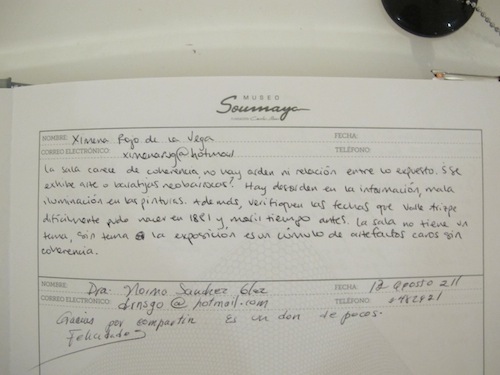 MUSEO
Soumaya
NOMBRE: Ximena Rojo de la Vega FECHA:
CORREO ELECTRÓNICO: @hotmail TELÉFONO:
La sala carece de coherencia no hay orden ni relación entre lo expuesto. ¿Se
exhibe arte o neobarrocas? Hay desorden en la información, mala
iluminación en las pinturas. Además, verifiquen las fechas que Valle
dificilmente pudo nacer en 1881 y morir tiempo antes. La sala no tiene un
tema, sin tema la exposición es un cúmulo de artefactos caros sin
coherencia.
NOMBRE: Dra. Norma Sanchez FECHA: Agosto 211
CORREO ELECTRÓNICO: @hotmail.com TELÉFONO:
Gracias por compartir Es un don de pocos.